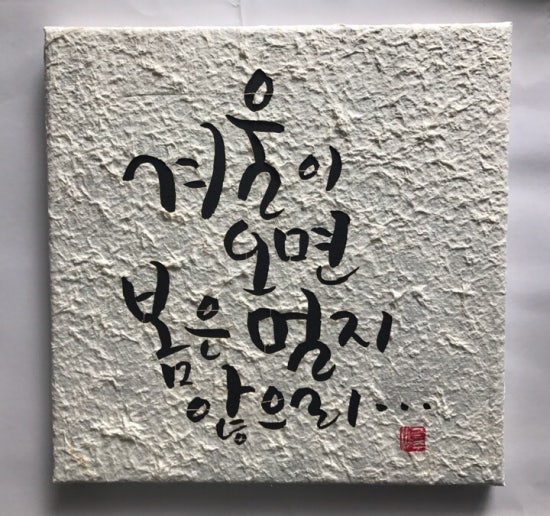 겨울이
오면
봄은 멀지
않으리...